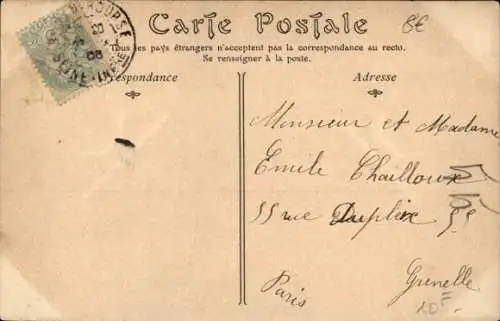 Carte Postale
8€
Tous les pays étrangers n'acceptent pas la correspondance au recto.
Se renseigner à la poste.
respondance
Adresse
Monsieur et Madame
Emile Chailloux
55 rue Dupleix 55
Paris
Grenelle
10F